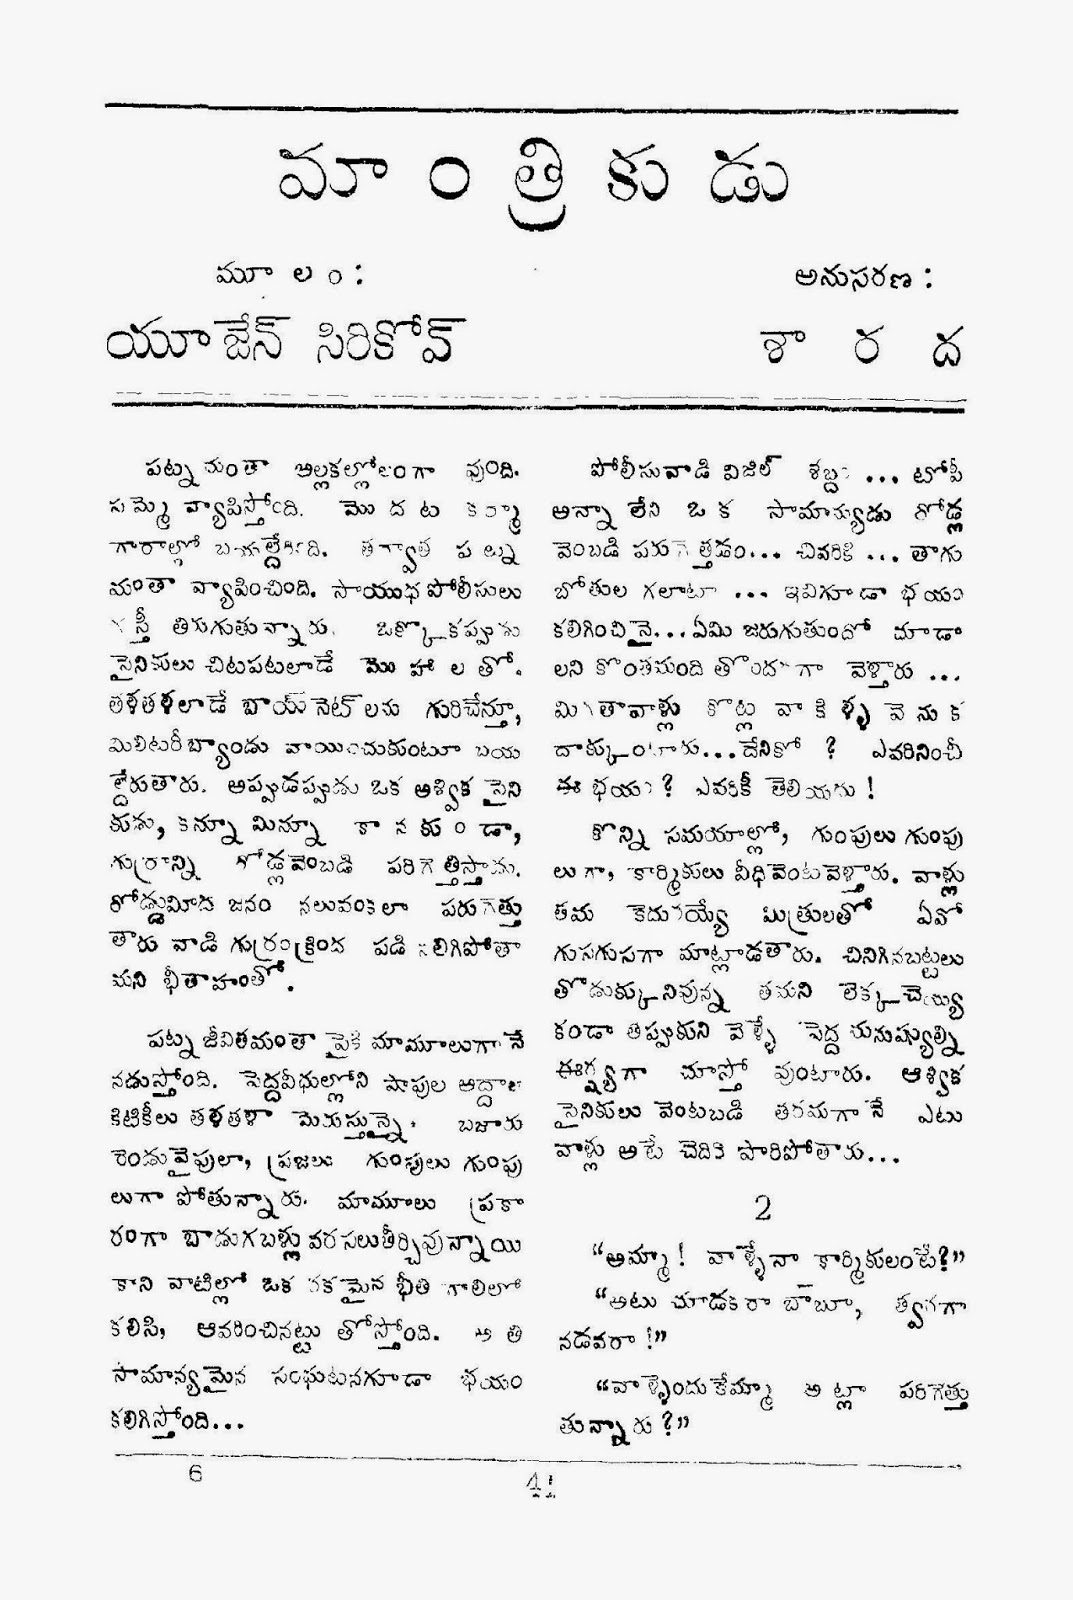 మాంత్రికుడు
మూలం:
యూజేన్ సిరికోవ్
అనుసరణ:
శారద
పట్నమంతా అల్లకల్లోలంగా వుంది.
సమ్మె వ్యాపిస్తోంది. మొదట కర్మా
గారాల్లో బయల్దేరింది. తర్వాత పట్న
మంతా వ్యాపించింది. సాయుధపోలీసులు
గస్తీ తిరుగుతున్నారు. ఒక్కొకప్పుడు
సైనికులు చిటపటలాడే మొహాలతో.
తళతళలాడే బాయ్‌నెట్‌లను గురిచేస్తూ,
మిలిటరీబ్యాండు వాయించుకుంటూ బయ
ల్దేరుతారు. అప్పుడప్పుడు ఒక ఆశ్విక సైని
కుడు, కన్నూ మిన్నూ కానకుండా,
గుర్రాన్ని రోడ్లవెంబడి పరిగెత్తిస్తాడు.
రోడ్డుమీద జనం నలువంకలా పరుగెత్తు
తారు వాడి గుర్రంక్రింద పడి నలిగిపోతా
మని భీతాహంతో.
పట్న జీవితమంతా పైకి మామూలుగానే
నడుస్తోంది. పెద్దవీధుల్లోని షాపుల అద్దాల
కిటికీలు తళతళా మెరుస్తున్నై. బజారు
రెండువైపులా, ప్రజలు గుంపులు గుంపు
లుగా పోతున్నారు. మామూలు ప్రకా
రంగా బాడుగబళ్లు వరసలుతీర్చివున్నాయి
కాని వాటిల్లో ఒక రకమైన భీతి గాలిలో
కలిసి, ఆవరించినట్టు తోస్తోంది. అతి
సామాన్యమైన సంఘటనగూడా భయం
కలిగిస్తోంది...
పోలీసువాడి విజిల్ శబ్దం ... టోపీ
అన్నా లేని ఒక సామాన్యుడు రోడ్ల
వెంబడి పరుగెత్తడం... చివరికి ... తాగు
బోతుల గలాటా ... ఇవిగూడా భయం
కలిగించినై... ఏమి జరుగుతుందో చూడా
లని కొంతమంది తొందరగా వెళ్తారు ...
మిగతావాళ్లు కొట్ల వాకిళ్ళ వెనుక
దాక్కుంటారు...దేనికో ? ఎవరినించీ
ఈ భయం ? ఎవరికీ తెలియదు !
కొన్ని సమయాల్లో, గుంపులు గుంపు
లుగా, కార్మికులు వీధివెంటవెళ్తారు. వాళ్లు
తమ కెదురయ్యే మిత్రులతో ఏవో
గుసగుసగా మాట్లాడతారు. చినిగినబట్టలు
తొడుక్కునివున్న తమని లెక్కచెయ్య
కండా తిప్పుకుని వెళ్ళే పెద్ద మనుష్యుల్ని
ఈర్ష్యగా చూస్తో వుంటారు. ఆశ్విక
సైనికులు వెంటబడి తరమగానే ఎటు
వాళ్లు అటే చెదిరి పారిపోతారు...
2
“అమ్మా ! వాళ్ళేనా కార్మికులంటే?”
“అటు చూడకురా బాబూ, త్వరగా
నడవరా !”
“వాళ్ళెందుకేమ్మా అట్లా పరిగెత్తు
తున్నారు ?”
6
41